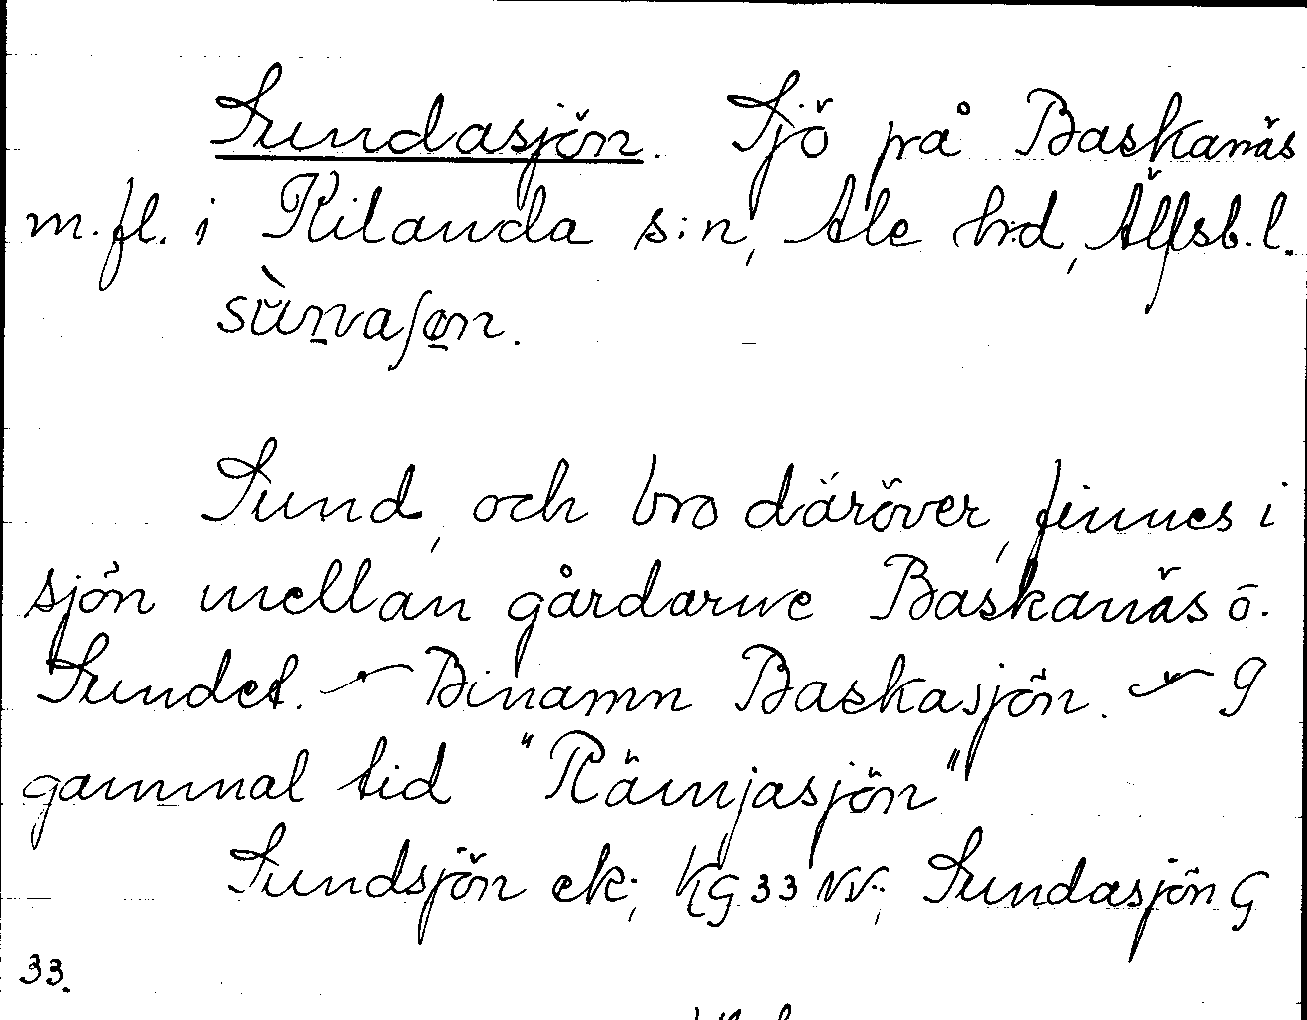 Sundasjön. Sjö på Baskanäs
m.fl. i Kilanda s:n, Ale hd, Älfsb. l.
Sund, och bro däröver, finnes i
sjön mellan gårdarne Baskanäs o.
Sundet. – Binamn Baskasjön. – I
gammal tid "Rämjasjön"
Sundsjön ek; KG 33 NV; Sundasjön G
33.